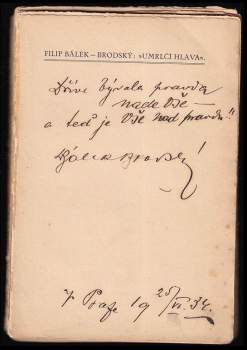 FILIP BÁLEK – BRODSKÝ: »UMRLČÍ HLAVA«.
Dříve bývala pravda
nade vše —
a teď je vše nad pravdu!!
Bálek Brodský
V Praze 19 25/VI. 34.